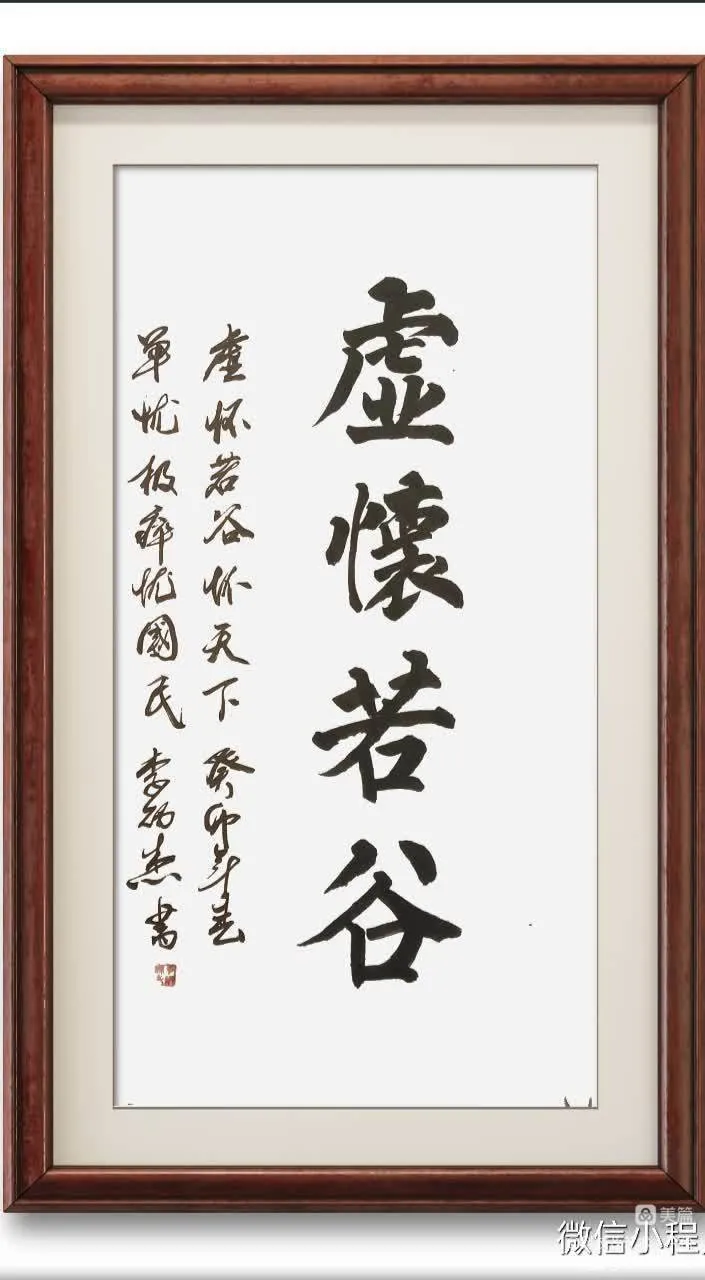 虚懷若谷
虚怀若谷怀天下 癸卯年春
单忧极瘁忧國民 李炳杰書
美篇
微信小程